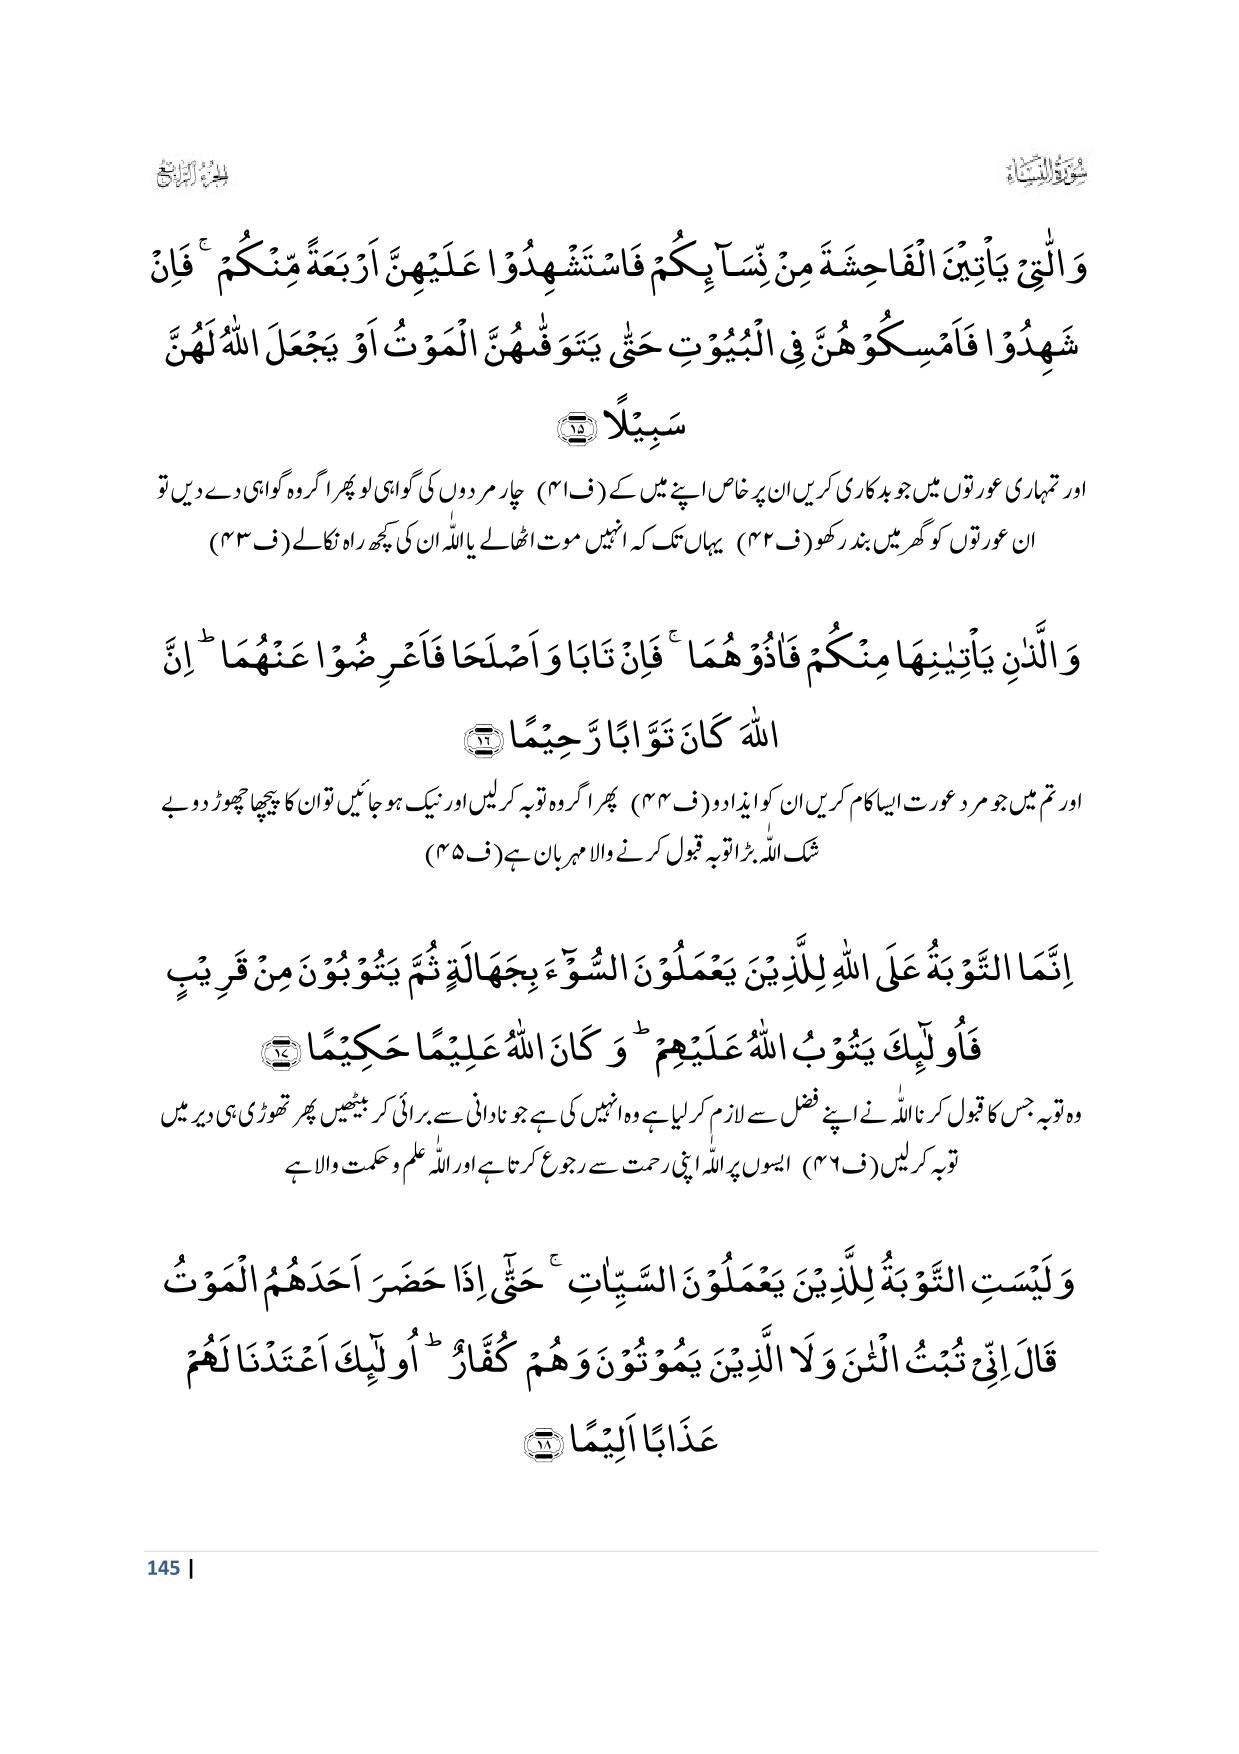 سُوْرَةُ النِّسَاء
الجزءُ الرَّابع
وَالّٰتِیۡ یَاۡتِیۡنَ الْفَاحِشَۃَ مِنۡ نِّسَآئِکُمْ فَاسْتَشْہِدُوۡا عَلَیۡہِنَّ اَرْبَعَۃً مِّنۡکُمْ ۚ فَاِنۡ
شَہِدُوۡا فَاَمْسِکُوۡہُنَّ فِی الْبُیُوۡتِ حَتّٰی یَتَوَفّٰىہُنَّ الْمَوْتُ اَوْ یَجْعَلَ اللہُ لَہُنَّ
سَبِیۡلًا ﴿۱۵﴾
اور تمہاری عورتوں میں جو بدکاری کریں ان پر خاص اپنے میں کے (ف۴۱) چار مردوں کی گواہی لو پھر اگر وہ گواہی دے دیں تو
ان عورتوں کو گھر میں بند رکھو (ف۴۲) یہاں تک کہ انہیں موت اٹھالے یا اللّٰہ ان کی کچھ راہ نکالے (ف۴۳)
وَالَّذٰنِ یَاۡتِیٰنِہَا مِنۡکُمْ فَاٰذُوۡہُمَا ۚ فَاِنۡ تَابَا وَاَصْلَحَا فَاَعْرِضُوۡا عَنْہُمَا ؕ اِنَّ
اللہَ کَانَ تَوَّابًا رَّحِیۡمًا ﴿۱۶﴾
اور تم میں جو مرد عورت ایسا کام کریں ان کو ایذا دو (ف۴۴) پھر اگر وہ توبہ کرلیں اور نیک ہوجائیں تو ان کا پیچھا چھوڑ دو بے
شک اللّٰہ بڑا توبہ قبول کرنے والا مہربان ہے (ف۴۵)
اِنَّمَا التَّوْبَۃُ عَلَی اللہِ لِلَّذِیۡنَ یَعْمَلُوۡنَ السُّوۡٓءَ بِجَہَالَۃٍ ثُمَّ یَتُوۡبُوۡنَ مِنۡ قَرِیۡبٍ
فَاُولٰٓئِکَ یَتُوۡبُ اللہُ عَلَیۡہِمْ ؕ وَکَانَ اللہُ عَلِیۡمًا حَکِیۡمًا ﴿۱۷﴾
وہ توبہ جس کا قبول کرنا اللّٰہ نے اپنے فضل سے لازم کرلیا ہے وہ انہیں کی ہے جو نادانی سے برائی کر بیٹھیں پھر تھوڑی ہی دیر میں
توبہ کرلیں (ف۴۶) ایسوں پر اللّٰہ اپنی رحمت سے رجوع کرتا ہے اور اللّٰہ علم و حکمت والا ہے
وَلَیۡسَتِ التَّوْبَۃُ لِلَّذِیۡنَ یَعْمَلُوۡنَ السَّیِّاٰتِ ۚ حَتّٰۤی اِذَا حَضَرَ اَحَدَہُمُ الْمَوْتُ
قَالَ اِنِّیۡ تُبْتُ الْـٰٔنَ وَلَا الَّذِیۡنَ یَمُوۡتُوۡنَ وَہُمْ کُفَّارٌ ؕ اُولٰٓئِکَ اَعْتَدْنَا لَہُمْ
عَذَابًا اَلِیۡمًا ﴿۱۸﴾
145 |